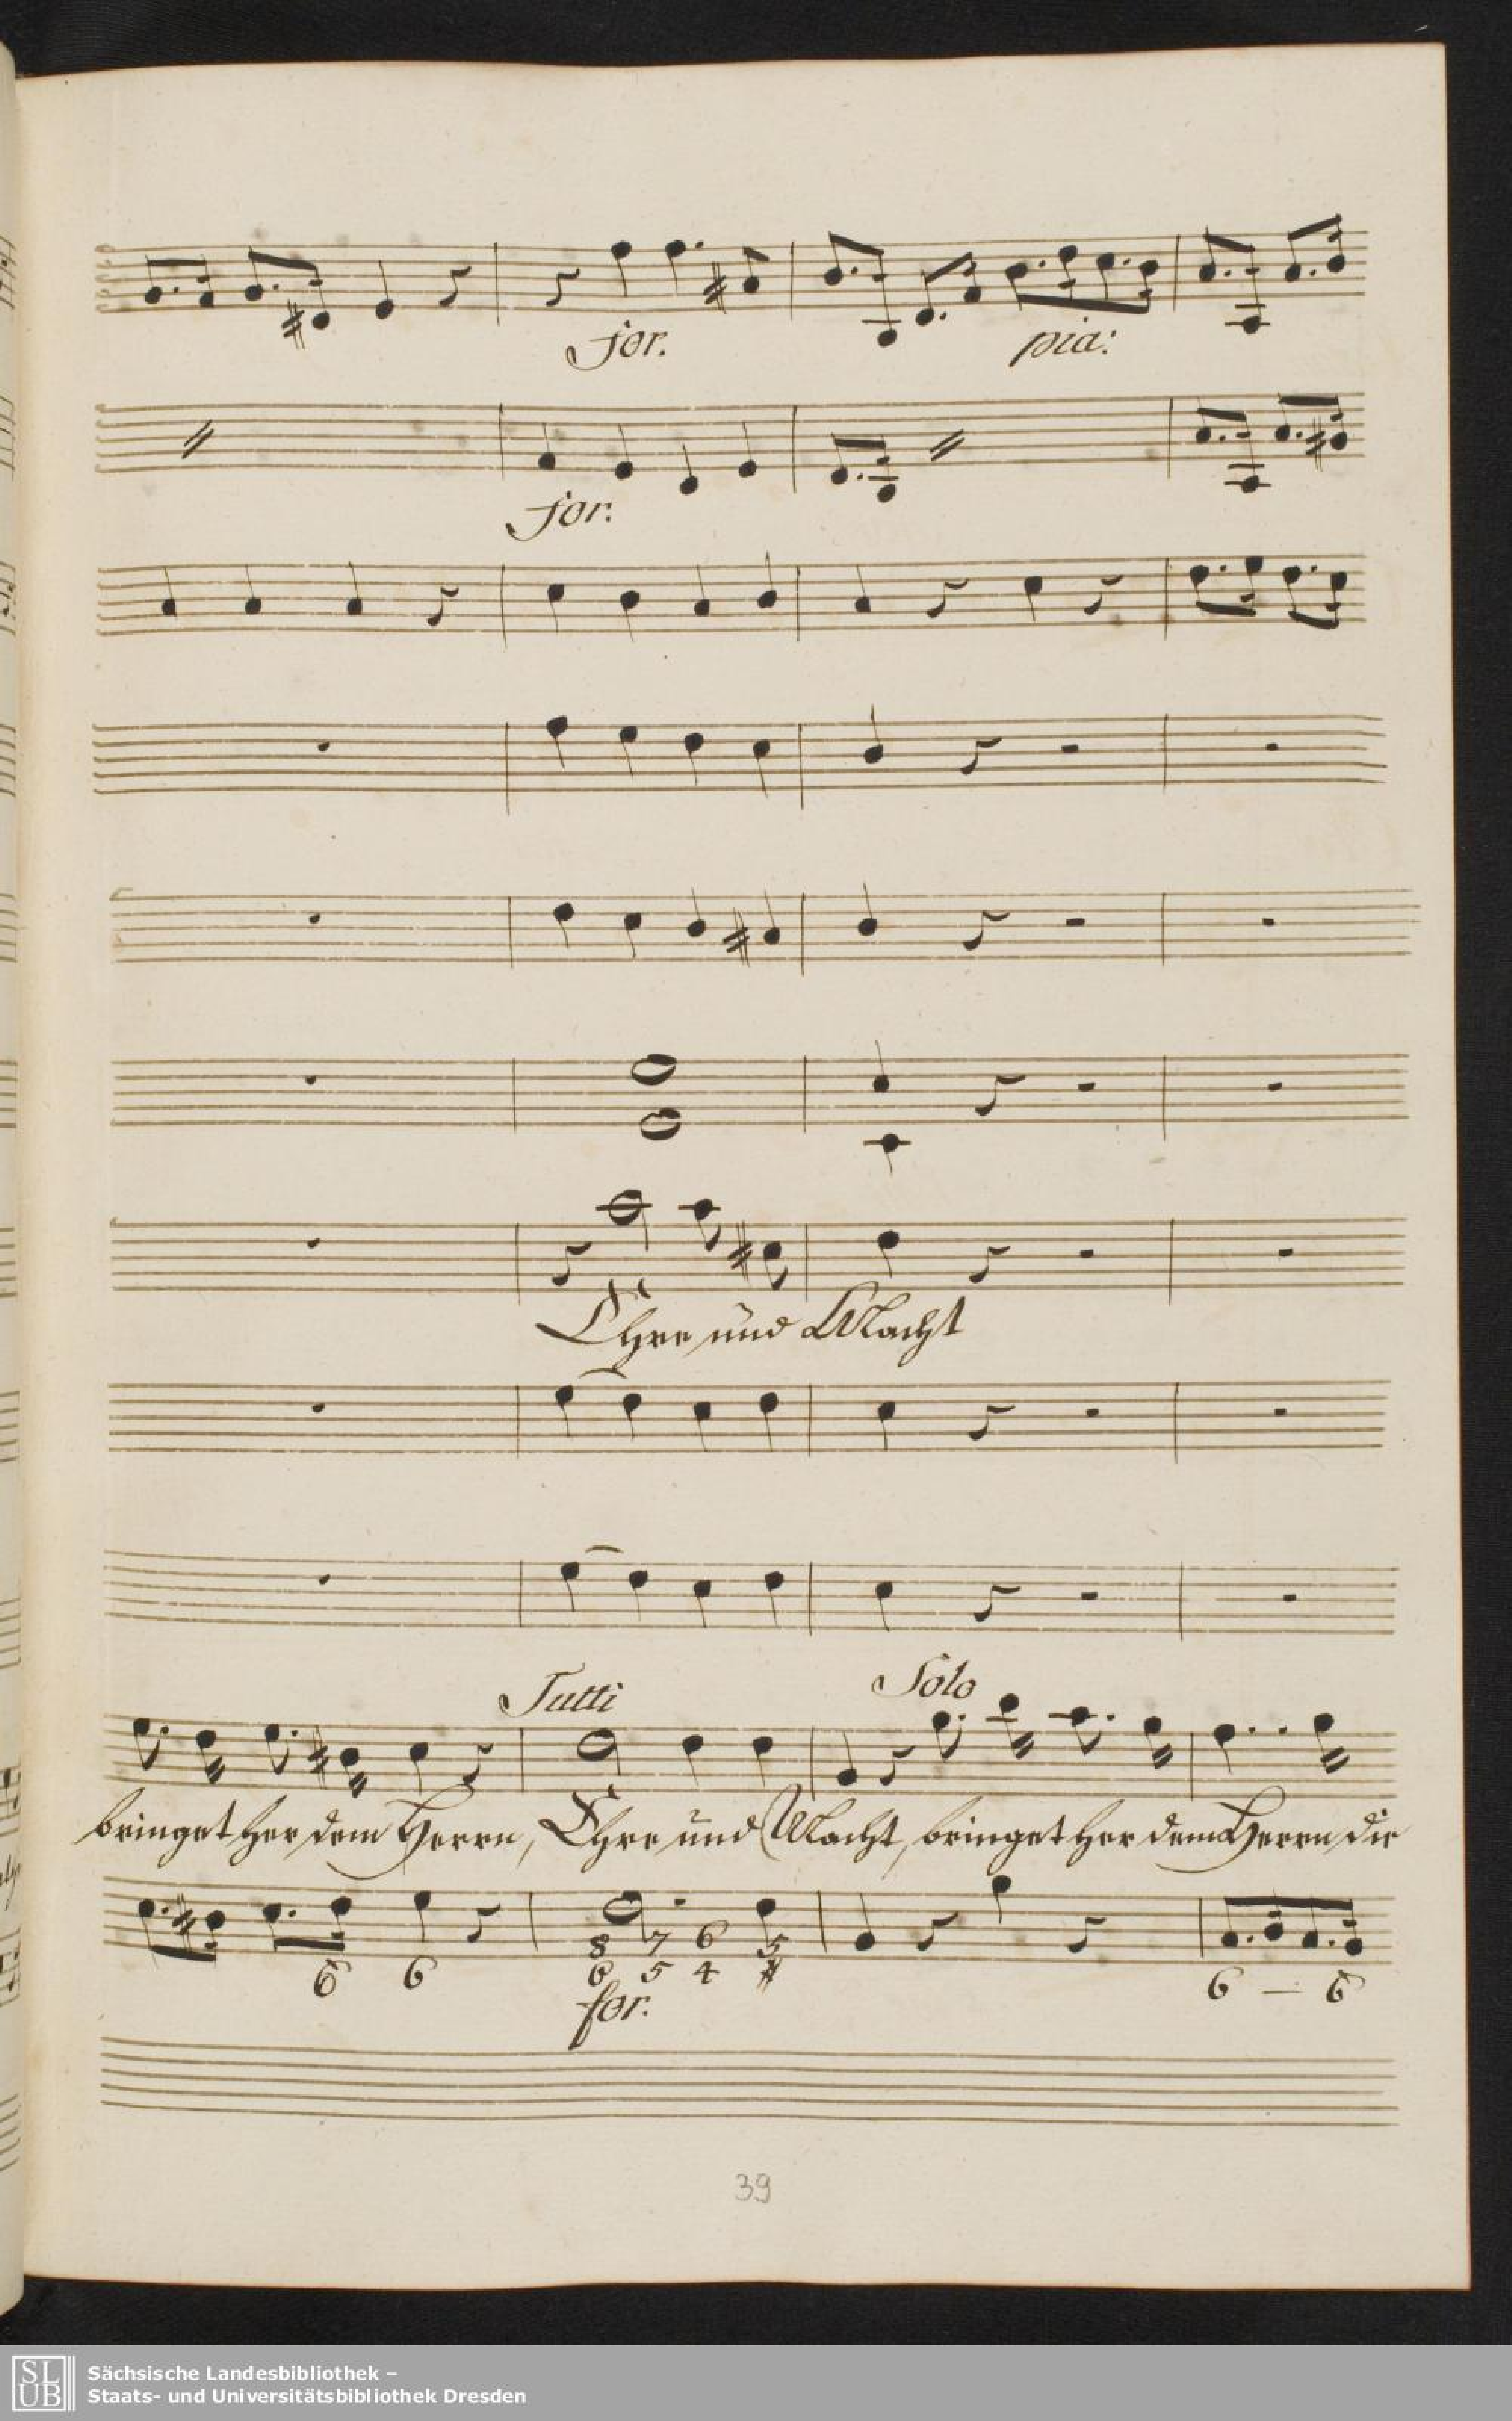 for.
pia:
for.
Ehre und Macht
Tutti
Solo
bringet her dem Herrn, Ehre und Macht, bringet her dem Herrn die
8 7 6 5
6 6 6 5 4 # 6 – 6
for.
39
SLUB
Sächsische Landesbibliothek –
Staats- und Universitätsbibliothek Dresden